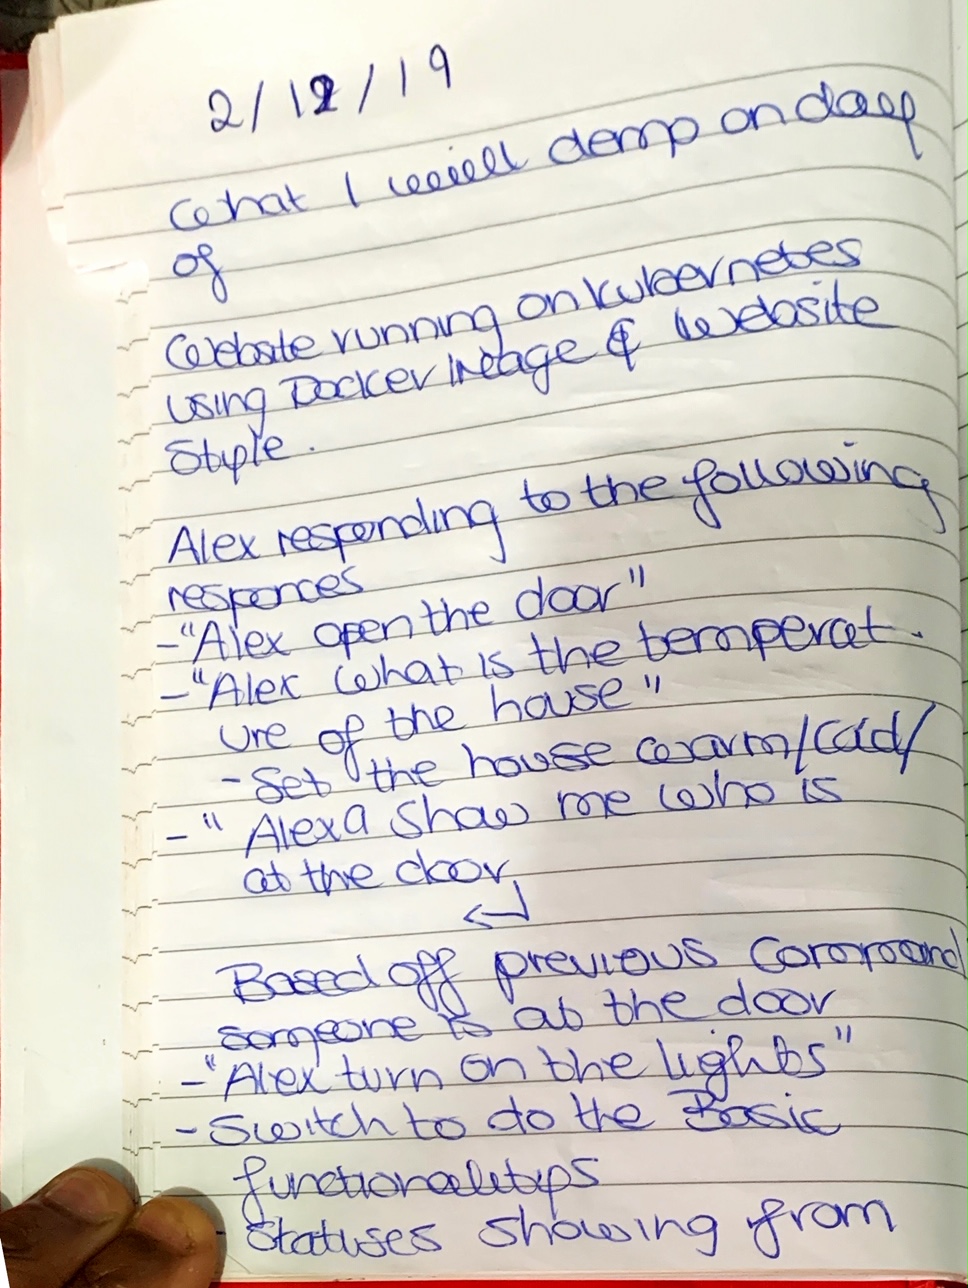 2/12/19
What I will demo on day
of
Website running on kubernetes
using Docker Image & Website
Style.
Alex responding to the following
responces
-"Alex open the door"
-"Alex what is the temperat-
ure of the house"
-Set the house warm/cold/
-" Alexa show me who is
at the door
Based off previous command
someone is at the door
-"Alex turn on the lights"
-Switch to do the Basic
functionalitys
- Statuses showing from